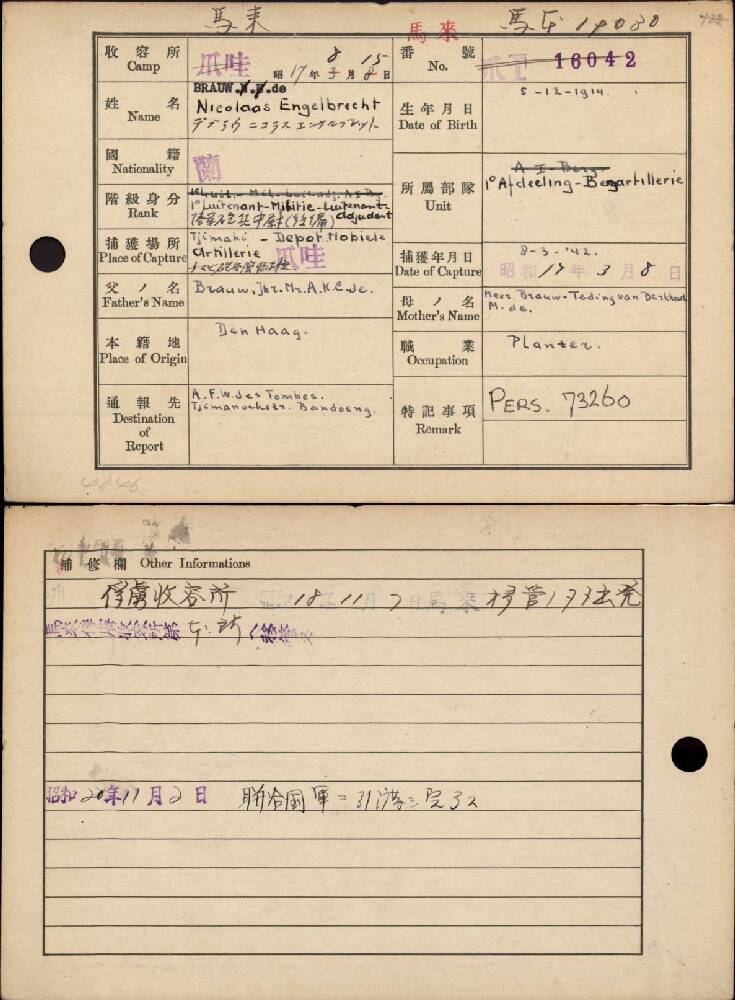 馬来
馬來
馬本 14080
收容所
Camp
爪哇
昭17年3月8日
8 15
番號
No.
16042
姓名
Name
BRAUW.N.E.de
Nicolaas Engelbrecht
デブラウ ニコラス エンゲルブレット
生年月日
Date of Birth
5-12-1914.
國籍
Nationality
蘭
階級身分
Rank
1e Luitenant-Militie-Luitenant-
adjudant
所屬部隊
Unit
A I Berg.
1e Afdeeling-Bergartillerie
捕獲場所
Place of Capture
Tjimahi - Depot Mobiele
Artillerie
爪哇
捕獲年月日
Date of Capture
8-3-'42.
昭和17年3月8日
父ノ名
Father's Name
Brauw, Jhr. Mr. A.K.C. de.
母ノ名
Mother's Name
Mevr. Brauw-Teding van Berkhout
M. de.
本籍地
Place of Origin
Den Haag.
職業
Occupation
Planter.
通報先
Destination
of
Report
A.F.W. des Tombes.
Tjimanoekstr. Bandoeng.
特記事項
Remark
PERS. 73260
補修欄 Other Informations
俘虜收容所 18年11月7日馬來 移管
馬来俘虜收容所第 本所 移管
昭和20年11月2日 聯合国軍ニ引渡